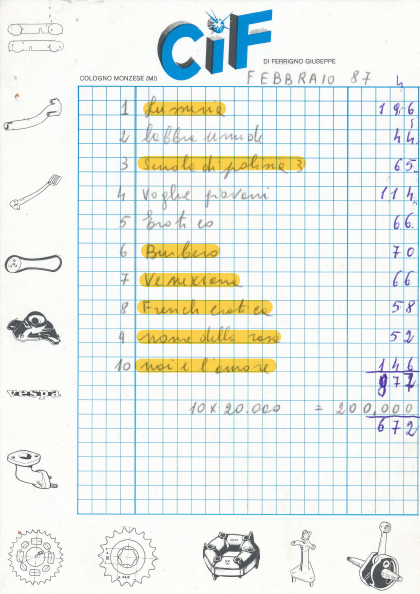 CiF
DI FERRIGNO GIUSEPPE
COLOGNO MONZESE (MI) FEBBRAIO 87
1 Lussuria 196
2 labbra umide 44
3 Scuola di polizia 3 65
4 Voglie giovani 114
5 Erotico 66
6 Burbero 70
7 Veneziana 66
8 French erotica 58
9 nome della rosa 52
10 noi e l'amore 146
872
10 x 20.000 = 200,000
672
vespa